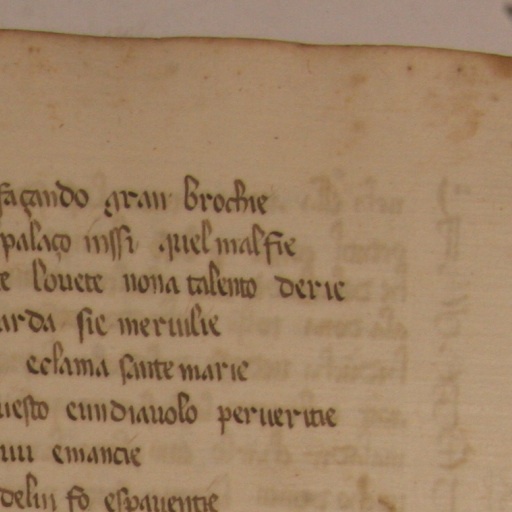 façando gran brochie
palaço inssi quel malfie
e louete nona talento derie
arda sie meruilie
eclama sante marie
uesto eundiauolo peruertie
emancie
delui fo espauentie